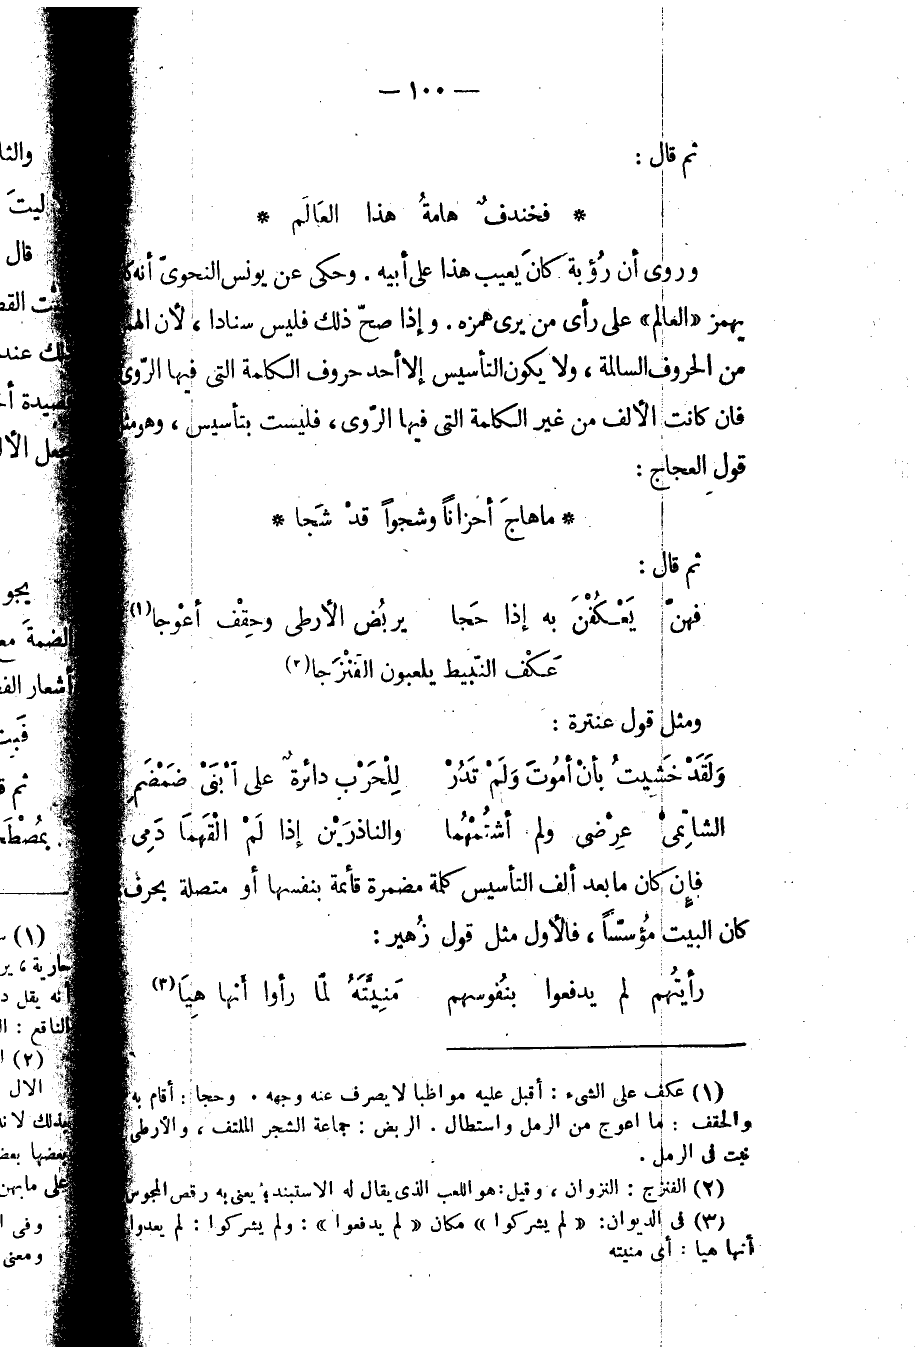 — ١٠٠ —
ثم قال :
* فخندفٌ هامةُ هذا العَالَم *
وروى أن رُؤبة كانَ يعيب هذا على أبيه . وحكى عن يونس النحوىّ أنه
يهمز «العالم» على رأى من يرى همزه . وإذا صحّ ذلك فليس سنادا ، لأن
من الحروف السالمة ، ولا يكون التأسيس إلا أحد حروف الكلمة التى فيها الرّوى
فان كانت الألف من غير الكلمة التى فيها الرّوى ، فليست بتأسيس ، وهو
قول العجاج :
* ماهاجَ أحزاناً وشجواً قدْ شَجا *
ثم قال :
فهنّ يَعْكُفْنَ به إذا حَجا    بربُض الأرطى وحِقْف أعْوجا(١)
عَكْف النّبيط يلعبون الفَنْزَجا(٢)
ومثل قول عنترة :
وَلَقَدْ خَشِيتُ بأنْ أمُوتَ وَلَمْ تَدُرْ    لِلْحَرْبِ دائرةٌ على ٱبْنَىْ ضَمْضَمِ
الشاتِمىْ عِرْضى ولم أشتُمْهُما    والناذرَيْن إذا لَمْ الْقَهمَا دَمِى
فإن كان مابعد ألف التأسيس كلمة مضمرة قائمة بنفسها أو متصلة بحرف
كان البيت مُؤسَّسًا ، فالأول مثل قول زُهير :
رأيتُهم لم يدفعوا بنُفوسهم    مَنِيَّتَهُ لمّا رأوا أنها هِيَا(٣)
(١) عكف على الشىء : أقبل عليه مواظبا لا يصرف عنه وجهه . وحجا : أقام به
والحقف : ما اعوج من الرمل واستطال . الربض : جماعة الشجر الملتف ، والأرطى
نبت فى الرمل .
(٢) الفنزج : النزوان ، وقيل : هو اللعب الذى يقال له الاستبند ؛ يعنى به رقص المجوس
(٣) فى الديوان : « لم يشركوا » مكان « لم يدفعوا » : ولم يشركوا : لم يعدوا
أنها هيا : أى منيته